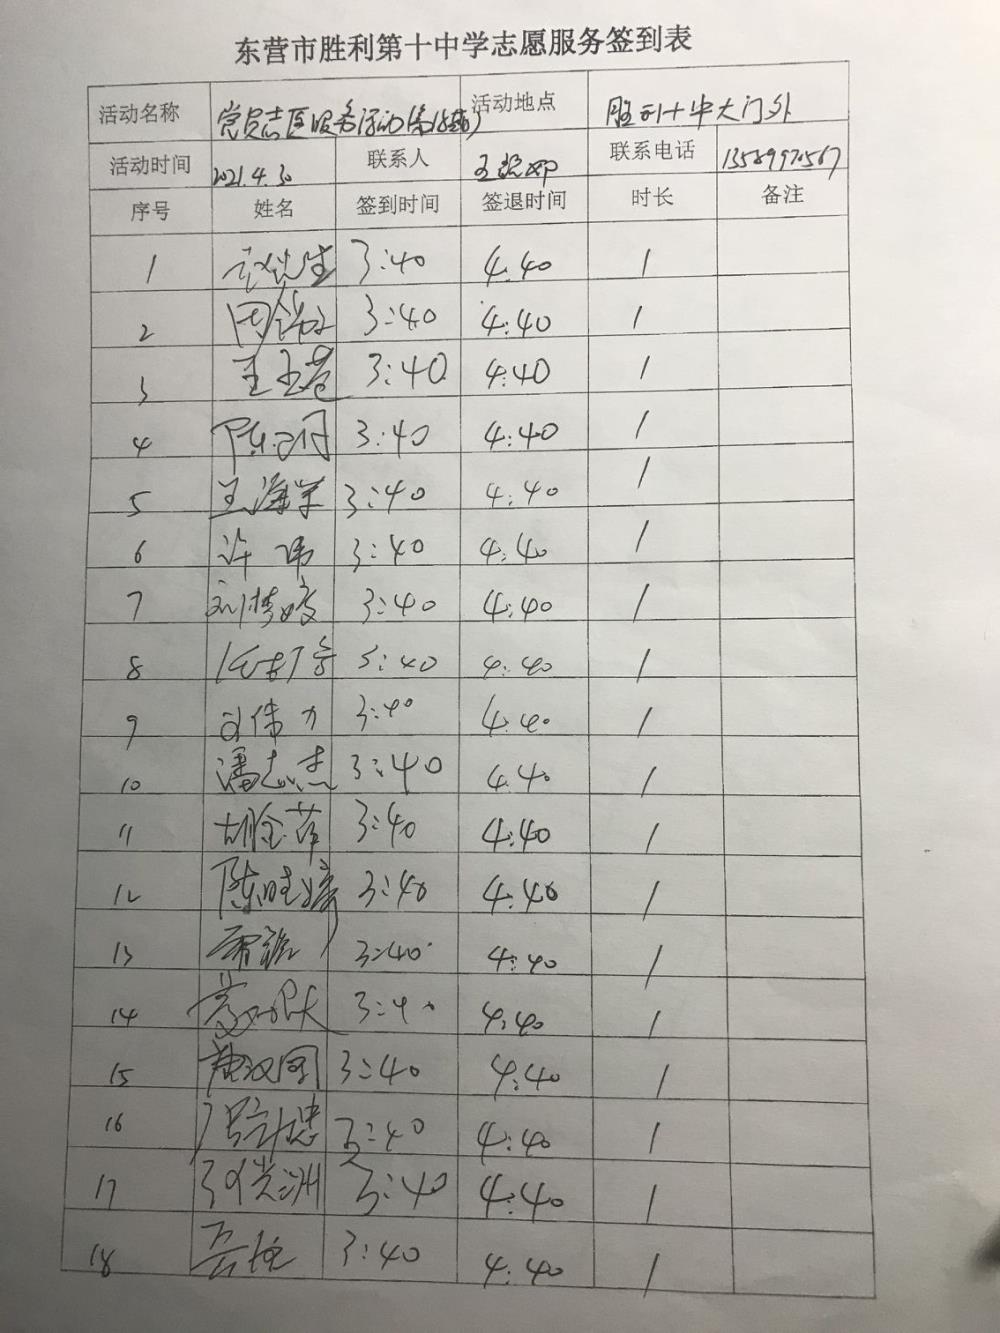 东营市胜利第十中学志愿服务签到表
活动名称 党员志愿服务活动 活动地点 胜利十中大门外
活动时间 2021.4.30 联系人 联系电话 13589970567
序号 姓名 签到时间 签退时间 时长 备注
1 3:40 4:40 1
2 3:40 4:40 1
3 王玉苍 3:40 4:40 1
4 3:40 4:40 1
5 王海学 3:40 4:40 1
6 许玮 3:40 4:40 1
7 刘梦媛 3:40 4:40 1
8 3:40 4:40 1
9 刘伟力 3:40 4:40 1
10 潘志杰 3:40 4:40 1
11 胡金萍 3:40 4:40 1
12 陈晓婷 3:40 4:40 1
13 3:40 4:40 1
14 3:40 4:40 1
15 3:40 4:40 1
16 3:40 4:40 1
17 3:40 4:40 1
18 3:40 4:40 1